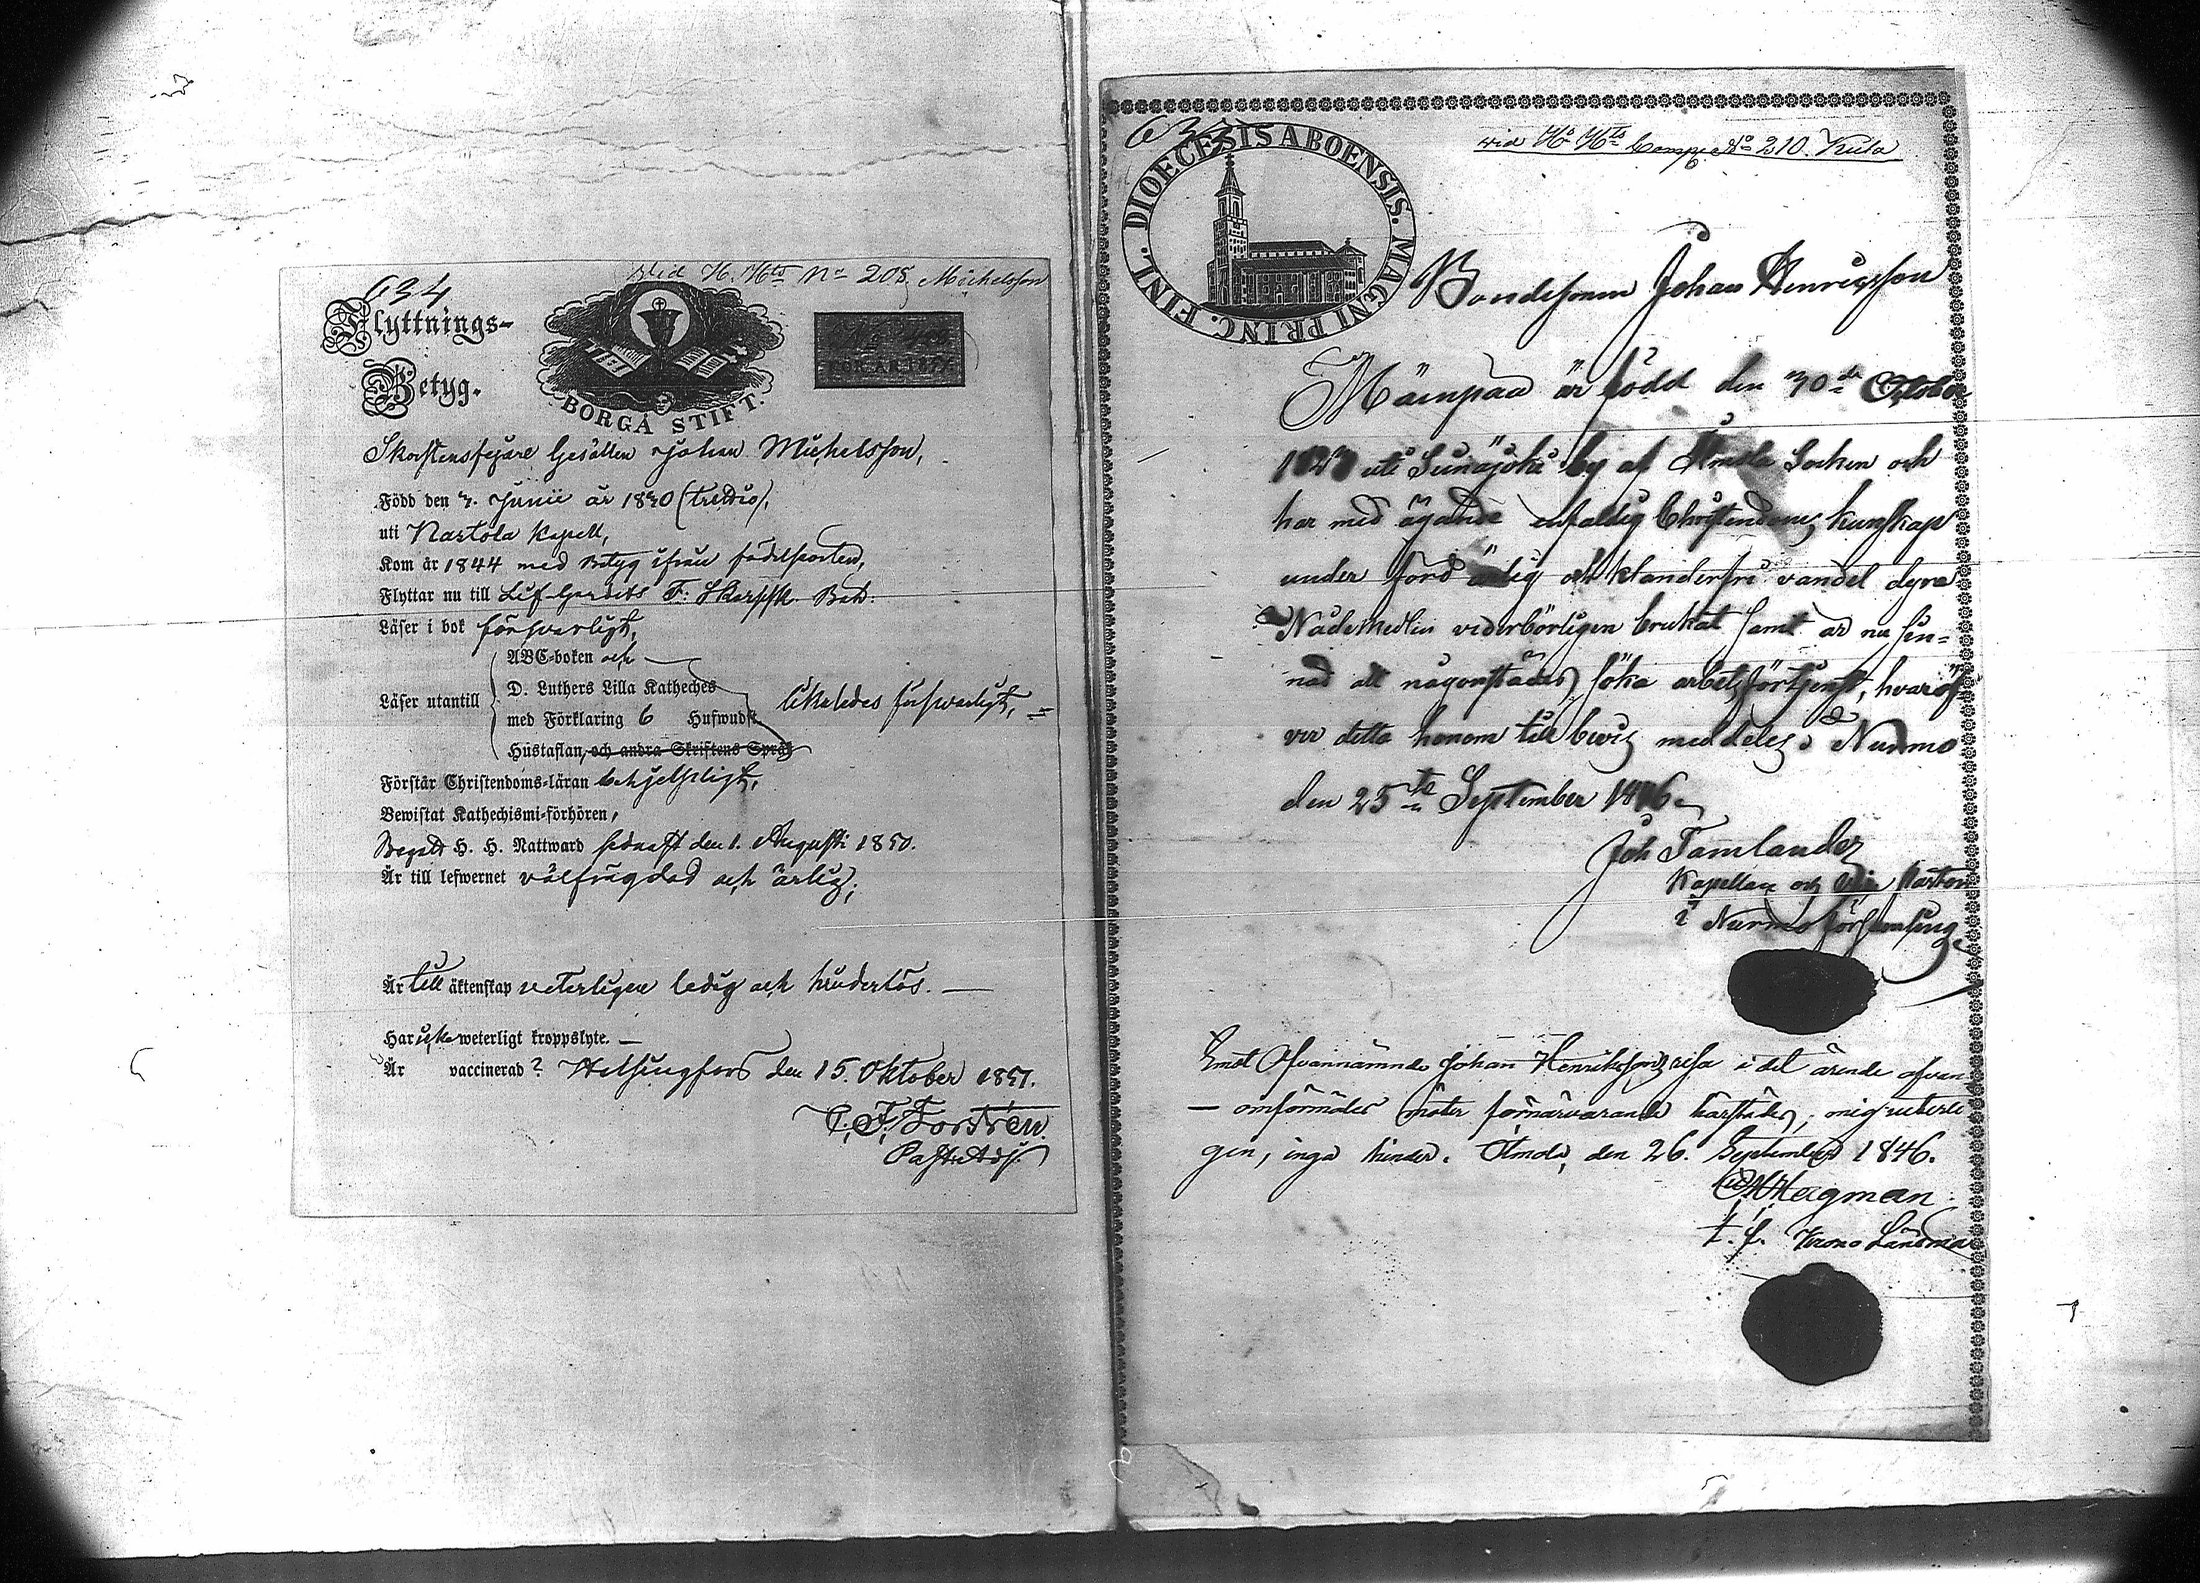 634
Vid H. Hts No 205 Michelsson
Flyttnings-
Betyg.
BORGÅ STIFT.
FÖR ÅR
Skorstensfejare Gesällen Johan Michelsson,
Född den 7. Junii år 1830 (trettio),
uti Nastola Kapell,
Kom år 1844 med Betyg ifrån födelseorten,
Flyttar nu till Lif-Gardets F. Skarpsk. Bat:
Läser i bok försvarligt,
ABC-boken och
Läser utantill D. Luthers Lilla Katheches
med Förklaring 6 Hufwudst. likaledes försvarligt,
Hustaflan, och andra Skriftens Språk
Förstår Christendoms-läran behjelpligt,
Bewistat Kathechismi-förhören,
Begått H. H. Nattward sednast den 1. Augusti 1850.
Är till lefwernet välfrägdad och ärlig;
Är till äktenskap veterligen ledig och hinderlös.
Har icke weterligt kroppslyte.
Är vaccinerad? Helsingfors den 15. Oktober 1851.
Past: Adj.
633
vid Ho Hts Comp. No 210. Kula
FINL. DIOECESIS ABOENSIS. MAGNI PRINC.
Bondesonen Johan Henricsson
Mäenpää är född den 30de October
uti Seinäjoki by af Ilmola Socken och
har med ägande enfaldig Christendoms kunskap
under förd ärlig och klanderfri vandel dyra
Nådemedlen vederbörligen brukat samt är nu sin-
nad att någonstädes söka arbetsförtjenst, hvaröf-
ver detta honom till bevis meddelas. Nurmo
den 25te September 1846.
Joh Tamlander
Kapellan och Pastor
i Nurmo församling
Emot Ofvannämnde Johan Henrikssons resa i det ärende ofvan
omförmäles möter förnärvarande härstädes, mig veterli
gen, inga hinder. Ilmola, den 26. September 1846.
Hagman
t. f. Krono Länsman